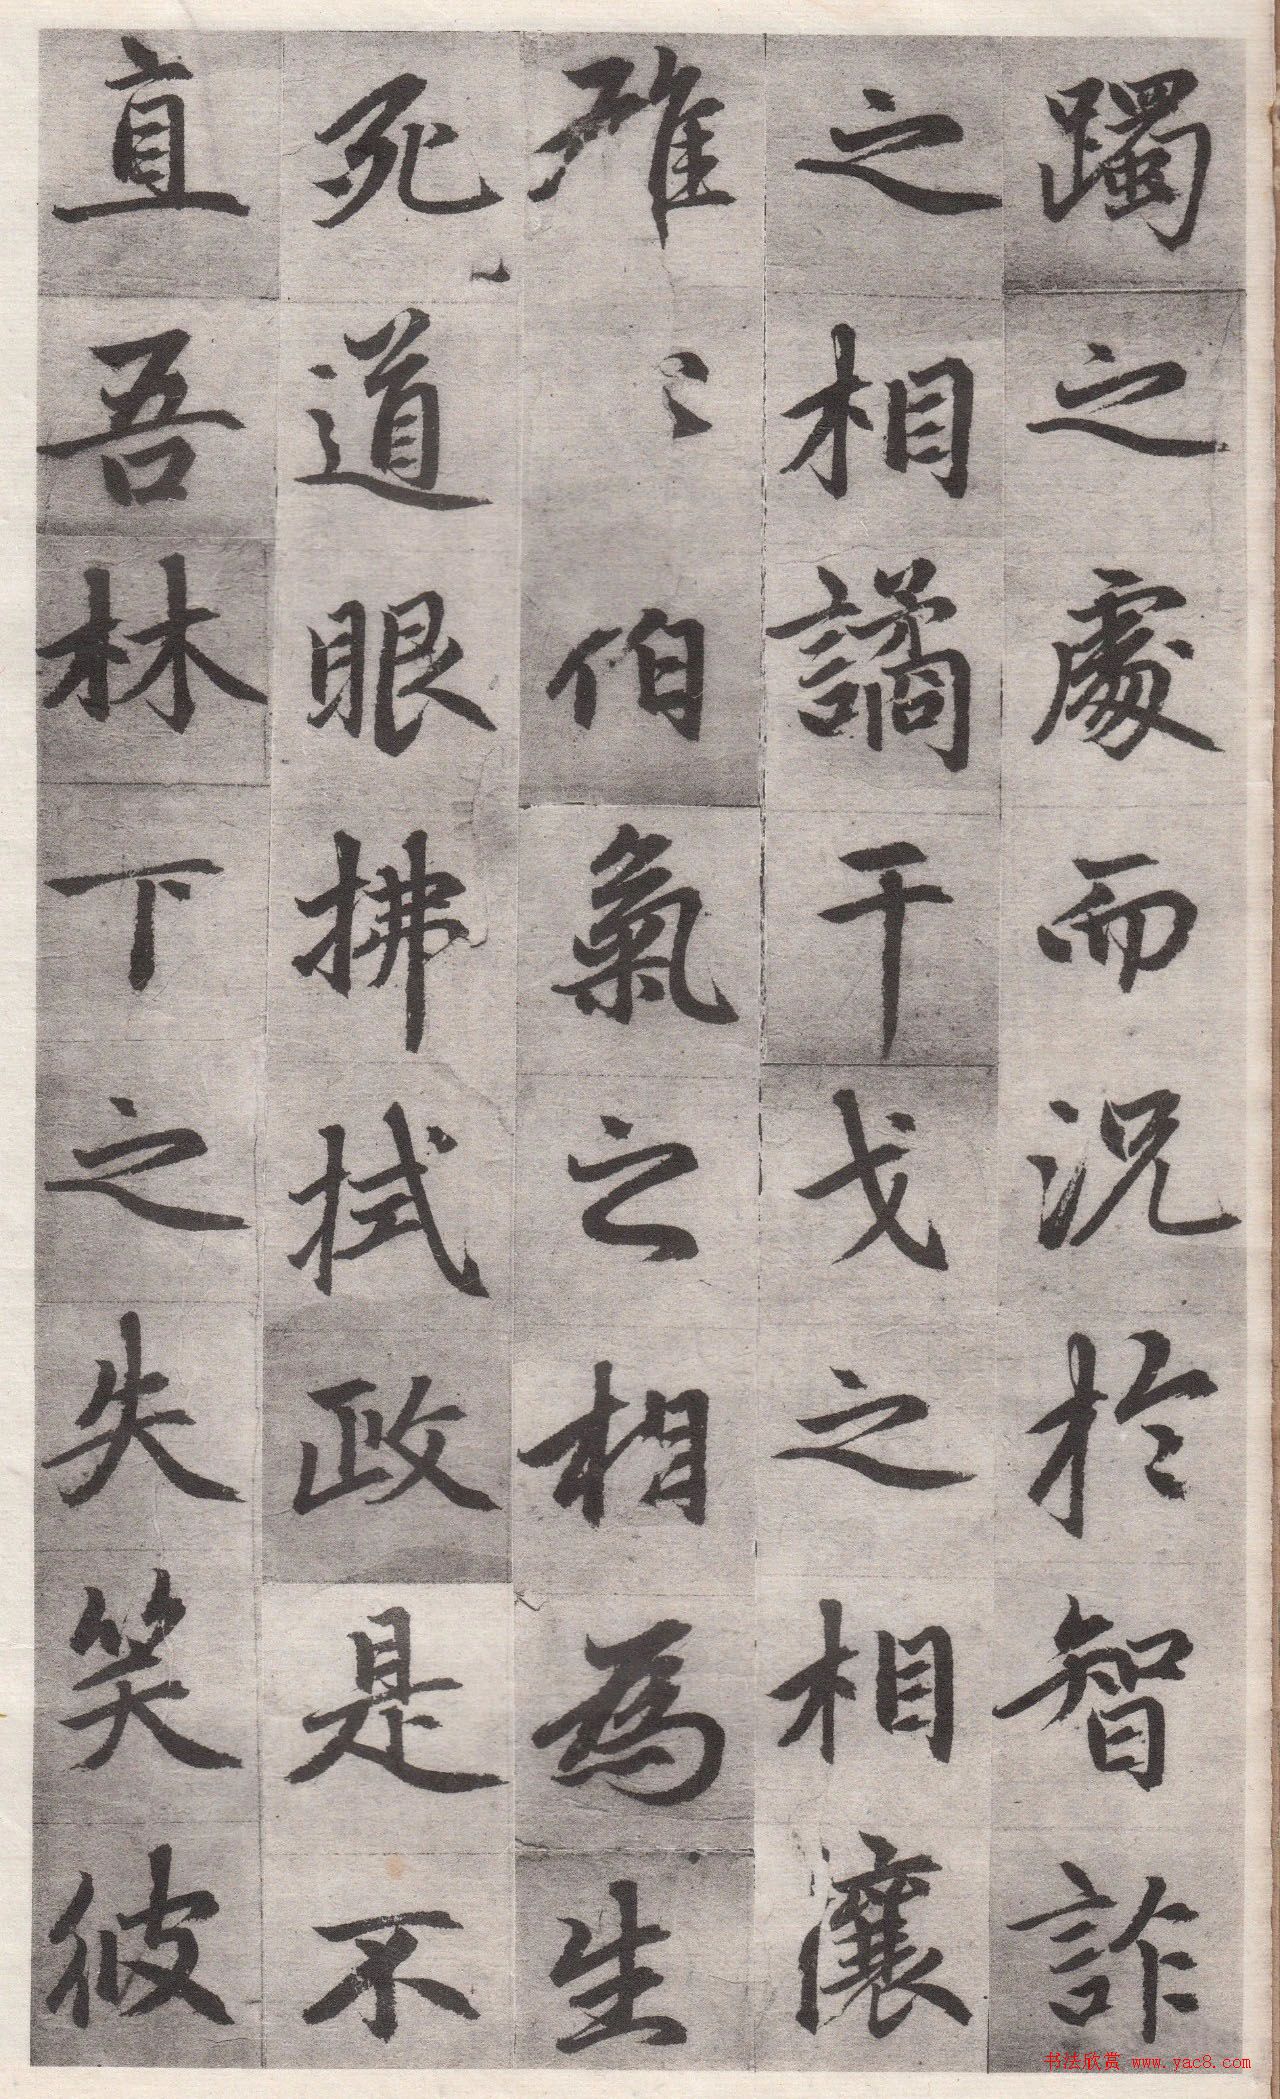 躅之處而況於智詐
之相譎干戈之相瀼
雄〻伯氣之相為生
死道眼拂拭政是不
直吾林下之失笑彼
书法欣赏 www.yac8.com